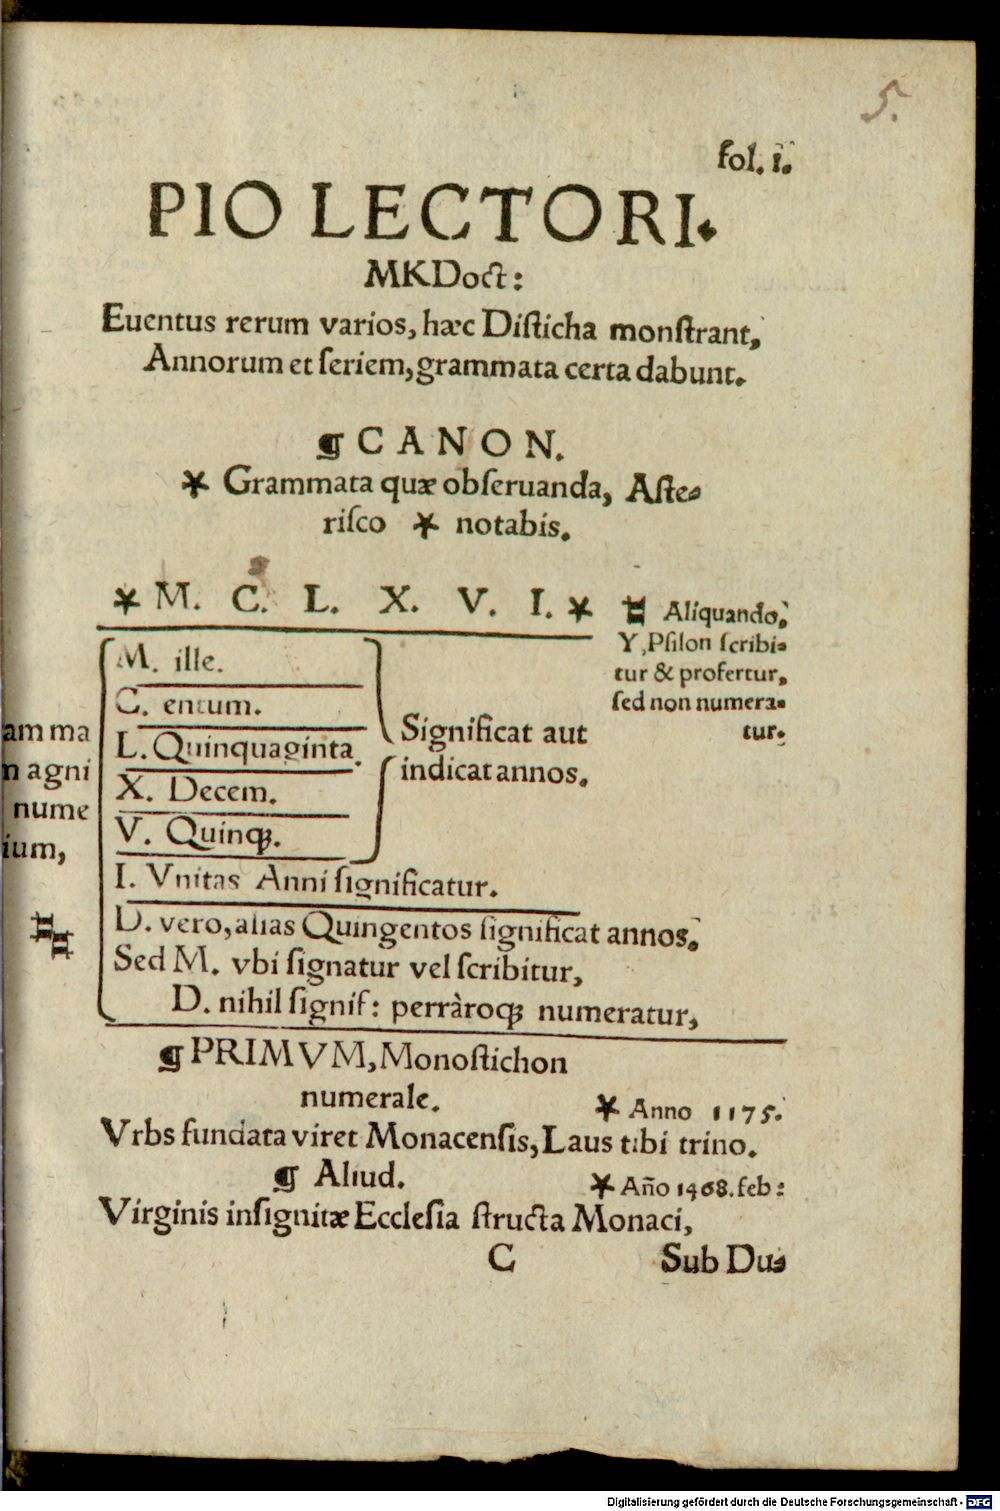 5.
fol. 1.
PIO LECTORI.
MKDoct:
Euentus rerum varios, hæc Disticha monstrant,
Annorum et seriem, grammata certa dabunt.
¶ CANON.
* Grammata quæ obseruanda, Aste-
risco * notabis.
* M. C. L. X. V. I. *
Aliquando,
Y, Psilon scribi-
tur & profertur,
sed non numera-
tur.
M. ille.
C. entum.
L. Quinquaginta.
X. Decem.
V. Quinqꝫ.
Significat aut
indicat annos.
I. Vnitas Anni significatur.
D. vero, alias Quingentos significat annos.
Sed M. vbi signatur vel scribitur,
D. nihil signif: perràroqꝫ numeratur,
am ma
n agni
nume
ium,
¶ PRIMVM, Monostichon
numerale.
* Anno 1175.
Vrbs fundata viret Monacensis, Laus tibi trino.
¶ Aliud.
* Año 1468. feb:
Virginis insignitæ Ecclesia structa Monaci,
C Sub Du-
Digitalisierung gefördert durch die Deutsche Forschungsgemeinschaft - DFG